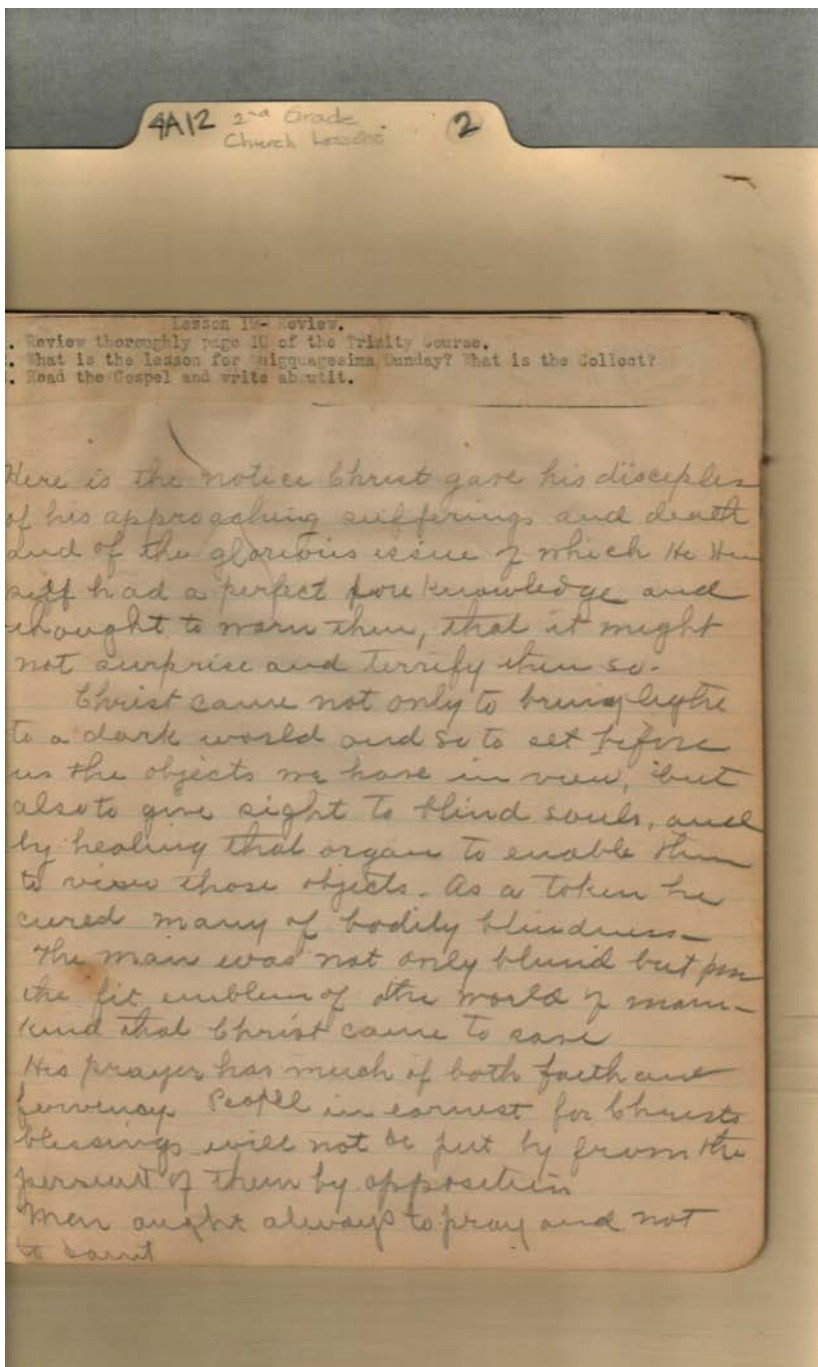 4A12 2nd Grade 2
Church Lessons
Lesson 19- Review.
. Review thoroughly page 10 of the Trinity Course.
. What is the lesson for Sunday? What is the Collect?
. Read the Gospel and write aboutit.
Here is the notice Christ gave his disciples
of his approaching sufferings and death
and of the glorious issue of which He Him
self had a perfect fore knowledge and
thought to warn them, that it might
not surprise and terrify them so.
Christ came not only to bring light
to a dark world and so to set before
us the objects we have in view, but
also to give sight to blind souls, and
by healing that organ to enable them
to view those objects. As a token he
cured many of bodily blindness-
The man was not only blind but poor
the fit emblem of the world of man-
kind that Christ came to save
His prayer has much of both faith and
fervency People in earnest for Christs
blessings will not be put by from the
persuit of them by opposition
Men ought always to pray and not
to